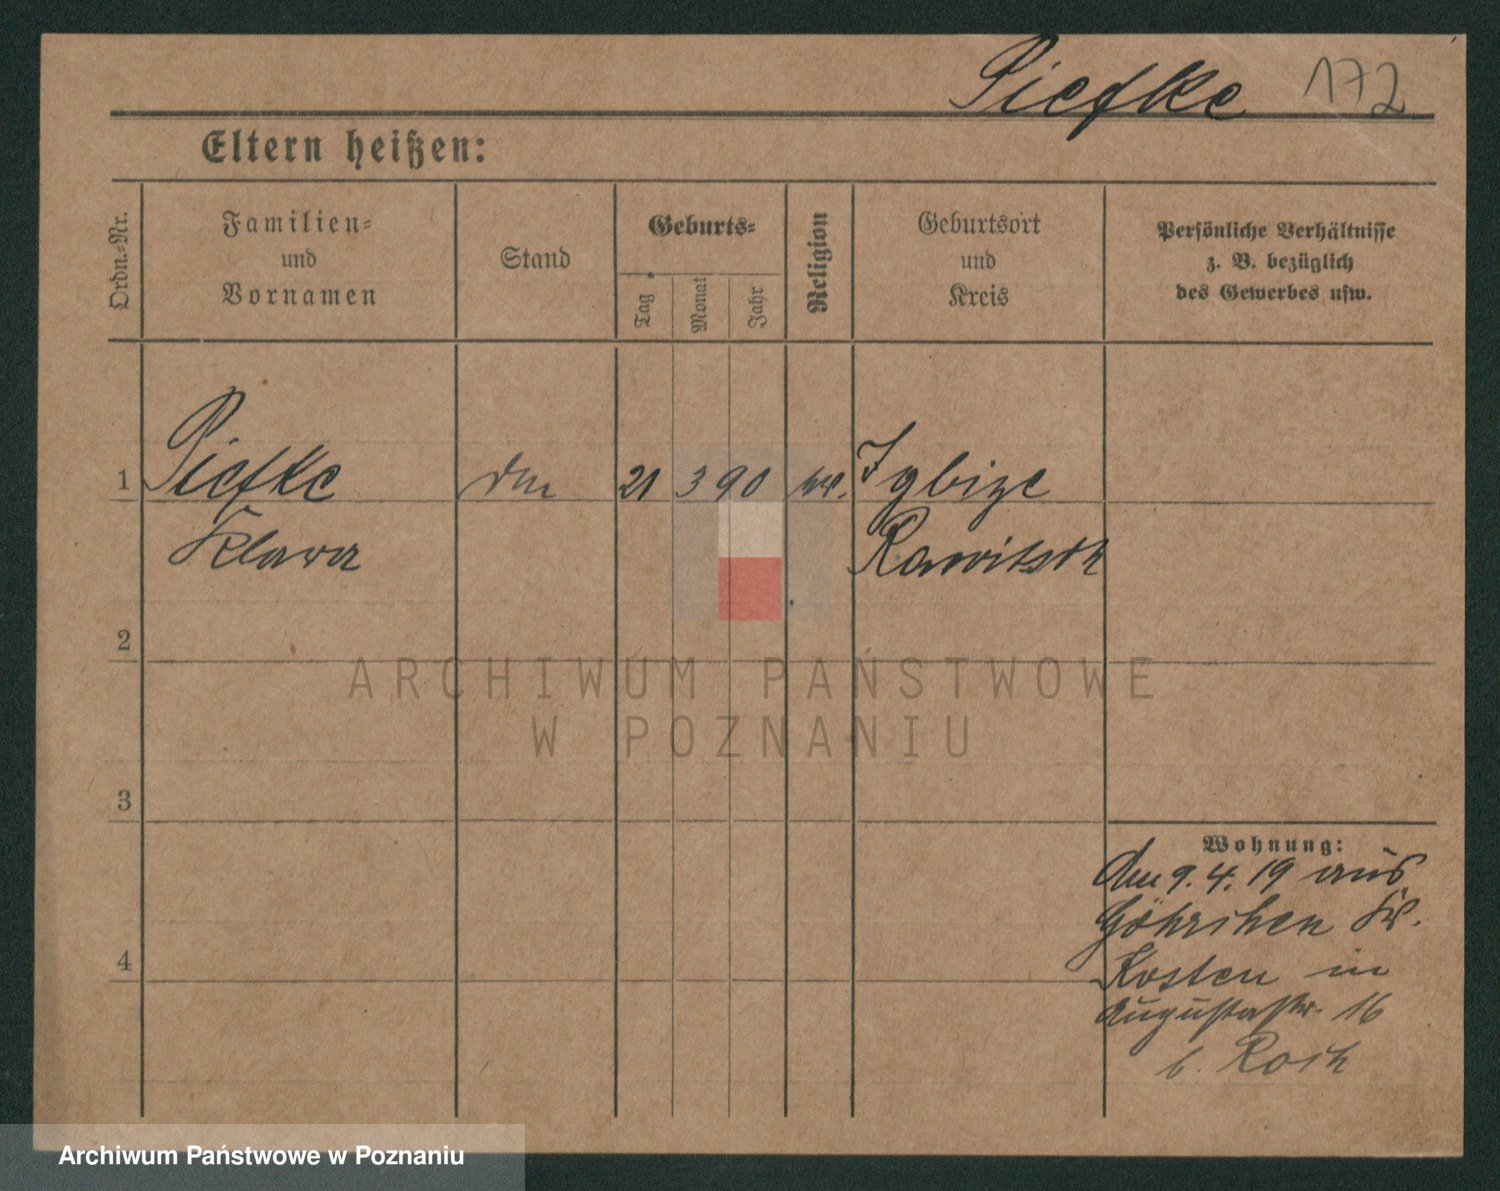 Piefke 172
Eltern heißen:
Ordn.-Nr.
Familien-
und
Vornamen
Stand
Geburts-
Tag
Monat
Jahr
Religion
Geburtsort
und
Kreis
Persönliche Verhältnisse
z. B. bezüglich
des Gewerbes usw.
1 Piefke 21 3 90
Klara Rawitsch
2
3
4
Wohnung:
Am 9. 4. 19 aus
Kr.
Kosten in
Augustastr. 16
b.
ARCHIWUM PAŃSTWOWE
W POZNANIU
Archiwum Państwowe w Poznaniu